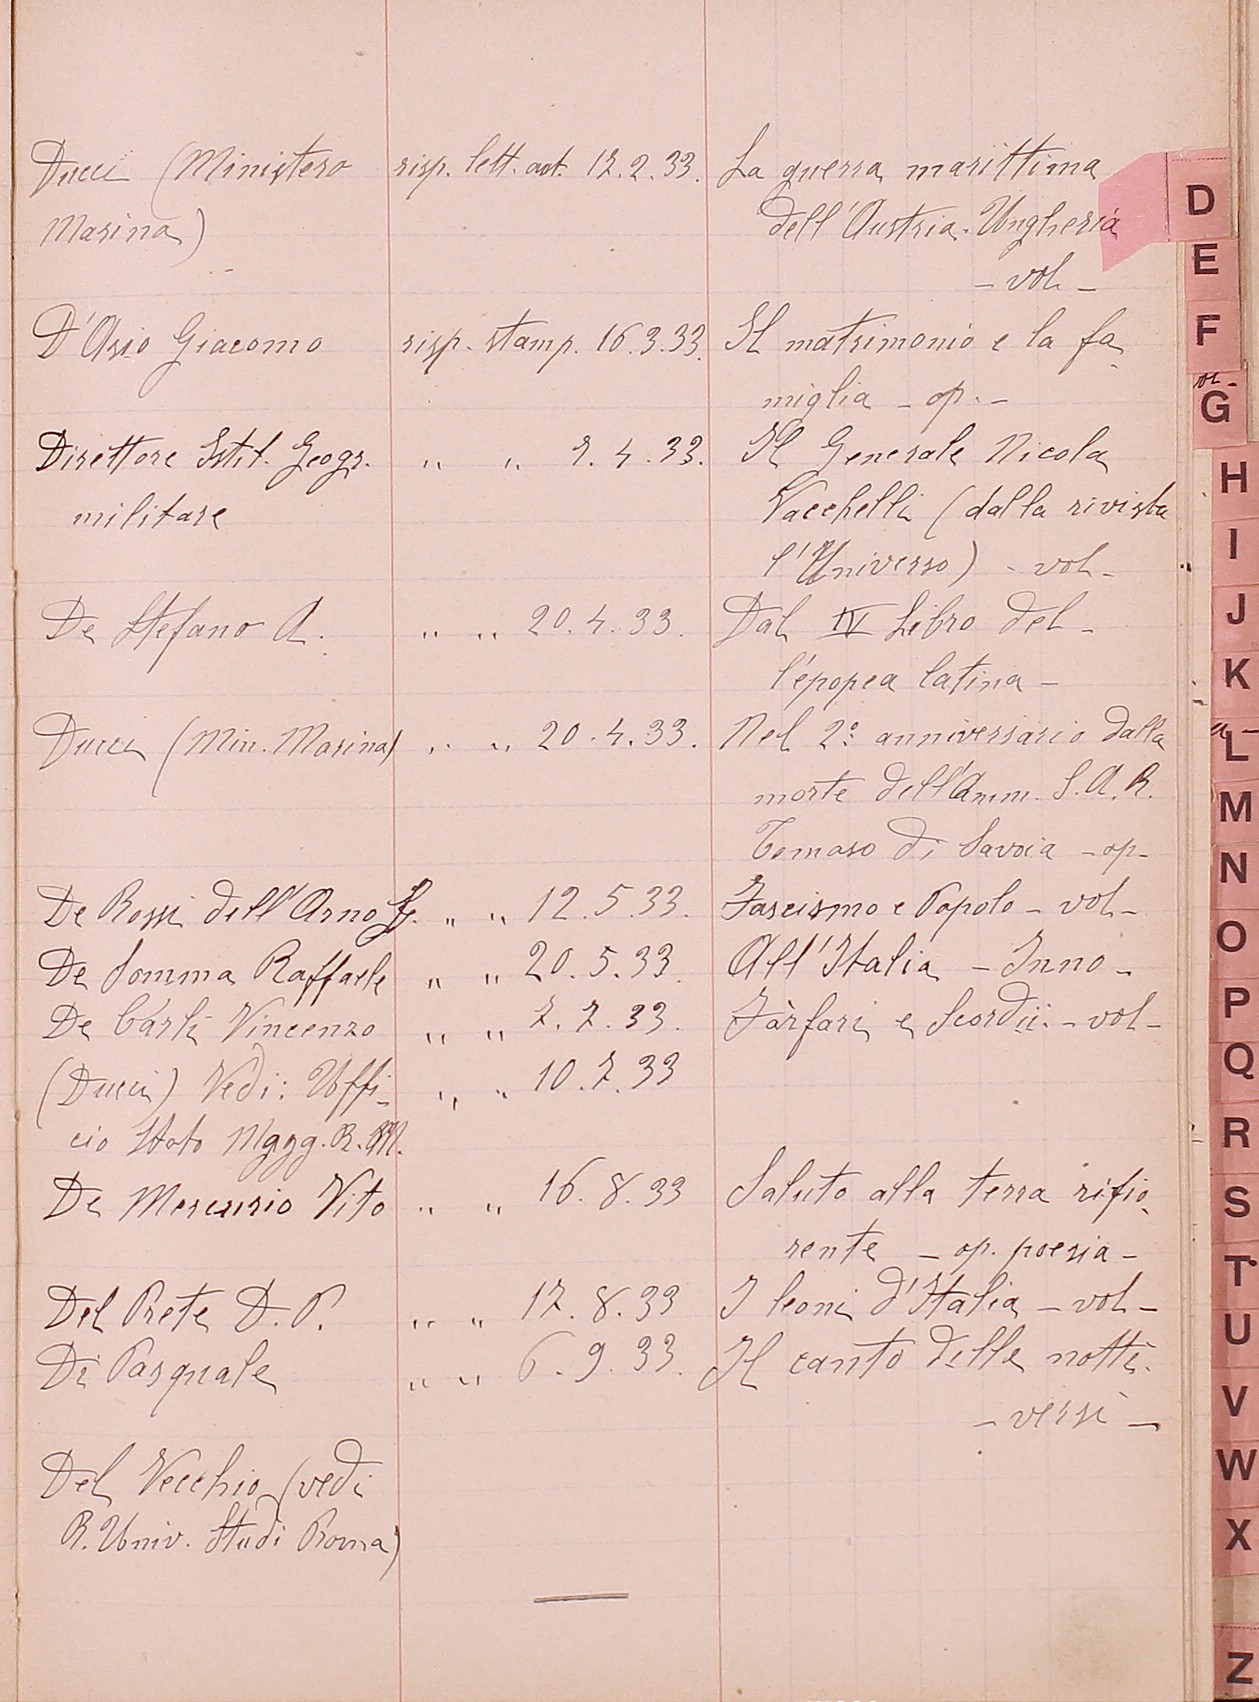 Ducci (Ministero risp. lett. aut. 12.2.33. La guerra marittima
Marina) dell'Austria-Ungheria
- vol -
D'Asio Giacomo risp. stamp. 16.3.33. Il matrimonio e la fa-
miglia - op. -
Direttore Istit. Geogr. " " 2.4.33. Il Generale Nicola
militare Vacchelli (dalla rivista
l'Universo) - vol -
De Stefano A. " " 20.4.33. Dal IV Libro del-
l'épopea latina -
Ducci (Min. Marina) " " 20.4.33. Nel 2º anniversario dalla
morte dell'Amm. S.A.R.
Tomaso di Savoia - op -
De Rossi dell'Arno " " 12.5.33. Fascismo e Popolo - vol -
De Somma Raffaele " " 20.5.33. All'Italia - Inno -
De Carli Vincenzo " " 7.7.33. Fàrfari e Scordii - vol -
(Ducci) Vedi: Uffi- " " 10.7.33
cio Stato Magg. R. M.
De Mercurio Vito " " 16.8.33 Saluto alla terra rifio-
rente - op. poesia -
Del Prete D. P. " " 17.8.33 I leoni d'Italia - vol -
Di Pasquale " " 6.9.33. Il canto delle notti -
- versi -
Del Vecchio (vedi
R. Univ. Studi Roma)
D
E
F
G
H
I
J
K
L
M
N
O
P
Q
R
S
T
U
V
W
X
Z